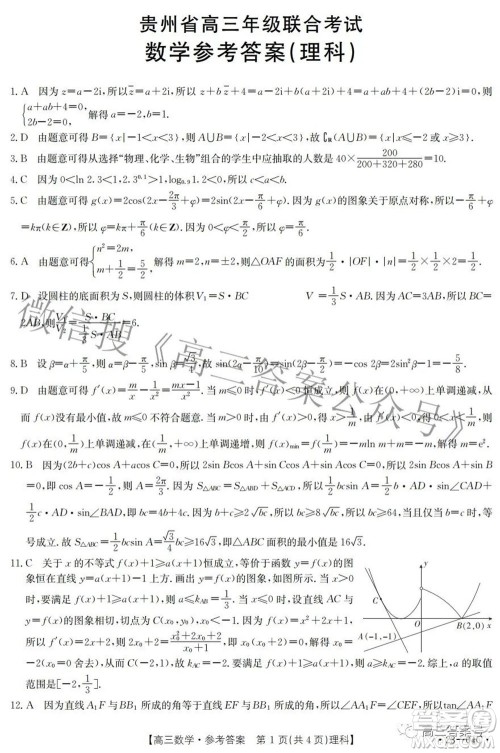 贵州省高三年级联合考试
数学参考答案(理科)
1. A 因为z=a-2i,所以z̄=a+2i,所以z+bz̄+4=a-2i+b(a+2i)+4=a+ab+4+(2b-2)i=0,则
{a+ab+4=0, 2b-2=0, 解得a=-2,b=1.
2. D 由题意可得B={x|-1<x<3},则A∪B={x|-2<x<3},故∁R(A∪B)={x|x≤-2或x≥3}.
3. B 由题意可得从选择“物理、化学、生物”组合的学生中应抽取的人数是40×200/(200+320+280)=10.
4. C 因为0<ln 2.3<1,2.3^0.1>1,log0.9 1.2<0,所以c<a<b.
5. C 由题意可得g(x)=2cos(2x-2π/3+φ)=2sin(2x-π/6+φ).因为g(x)的图象关于原点对称,所以-π/6+φ
=kπ(k∈Z),所以φ=kπ+π/6(k∈Z).因为0<φ<π/2,所以φ=π/6.
6. A 由题意可得{n²=2m, m+1/2=5/2, 解得m=2,n=±2,则△OAF的面积为1/2·|OF|·|n|=1/2×1/2×2=1/2.
7. D 设圆柱的底面积为S,则圆柱的体积V₁=S·BC V =1/3 S·AB.因为AC=3AB,所以BC=
2AB,则V₁/V =S·BC/(1/3 S·AB)=6.
8. B 设β=α+π/5,则α=β-π/5,sin β=√3/4,故sin(2α-π/10)=sin(2β-π/2)=-cos 2β=2sin²β-1=-5/8.
9. D 由题意可得f′(x)=m/x-1/x²=(mx-1)/x².当m≤0时,f′(x)<0恒成立,则f(x)在(0,+∞)上单调递减,从
而f(x)没有最小值,故m≤0不符合题意.当m>0时,由f′(x)>0,得x>1/m,由f′(x)<0,得0<x<1/m,则
f(x)在(0,1/m)上单调递减,在(1/m,+∞)上单调递增,则f(x)min=f(1/m)=-mln m+m=-m,解得m=e².
10. B 因为(2b+c)cos A+acos C=0,所以2sin Bcos A+sin Ccos A+sin Acos C=0,所以2sin Bcos A+sin B
=0,即cos A=-1/2,则A=2π/3.因为S△ABC=S△ABD+S△ACD,所以1/2bcsin A=1/2b·AD·sin∠CAD+
1/2c·AD·sin∠BAD,即bc=4b+4c.因为b+c≥2√bc,所以bc≥8√bc,所以bc≥64,当且仅当b=c时,等
号成立.故S△ABC=1/2bcsin A=√3/4bc≥16√3,即△ABC面积的最小值是16√3.
11. C 关于x的不等式f(x)+1≥a(x+1)恒成立,等价于函数y=f(x)的图
象恒在直线y=a(x+1)-1上方.画出y=f(x)的图象,如图所示.当x>0
时,要满足f(x)+1≥a(x+1),则a≤kAB=1/3.当x<0时,设直线AC与
y=f(x)的图象相切,切点为C(x₀,y₀),x₀<-1.因为f(x)=x²+2x+1,
所以f′(x)=2x+2,则2x₀+2=(x₀²+2x₀+2)/(x₀+1),即x₀(x₀+2)=0,解得x₀=
-2(x₀=0舍去),从而kAC=-2,故要满足f(x)+1≥a(x+1),则a≥kAC=-2.综上,a的取值
范围是[-2,1/3].
y
C
O
B(2,0)
x
A(-1,-1)
12. A 因为直线A₁F与BB₁所成的角等于直线EF与BB₁所成的角,所以∠AA₁F=∠CEF,所以tan∠AA₁F
【高三数学·参考答案 第1页(共4页)理科】
微信搜《高三答案公众号》